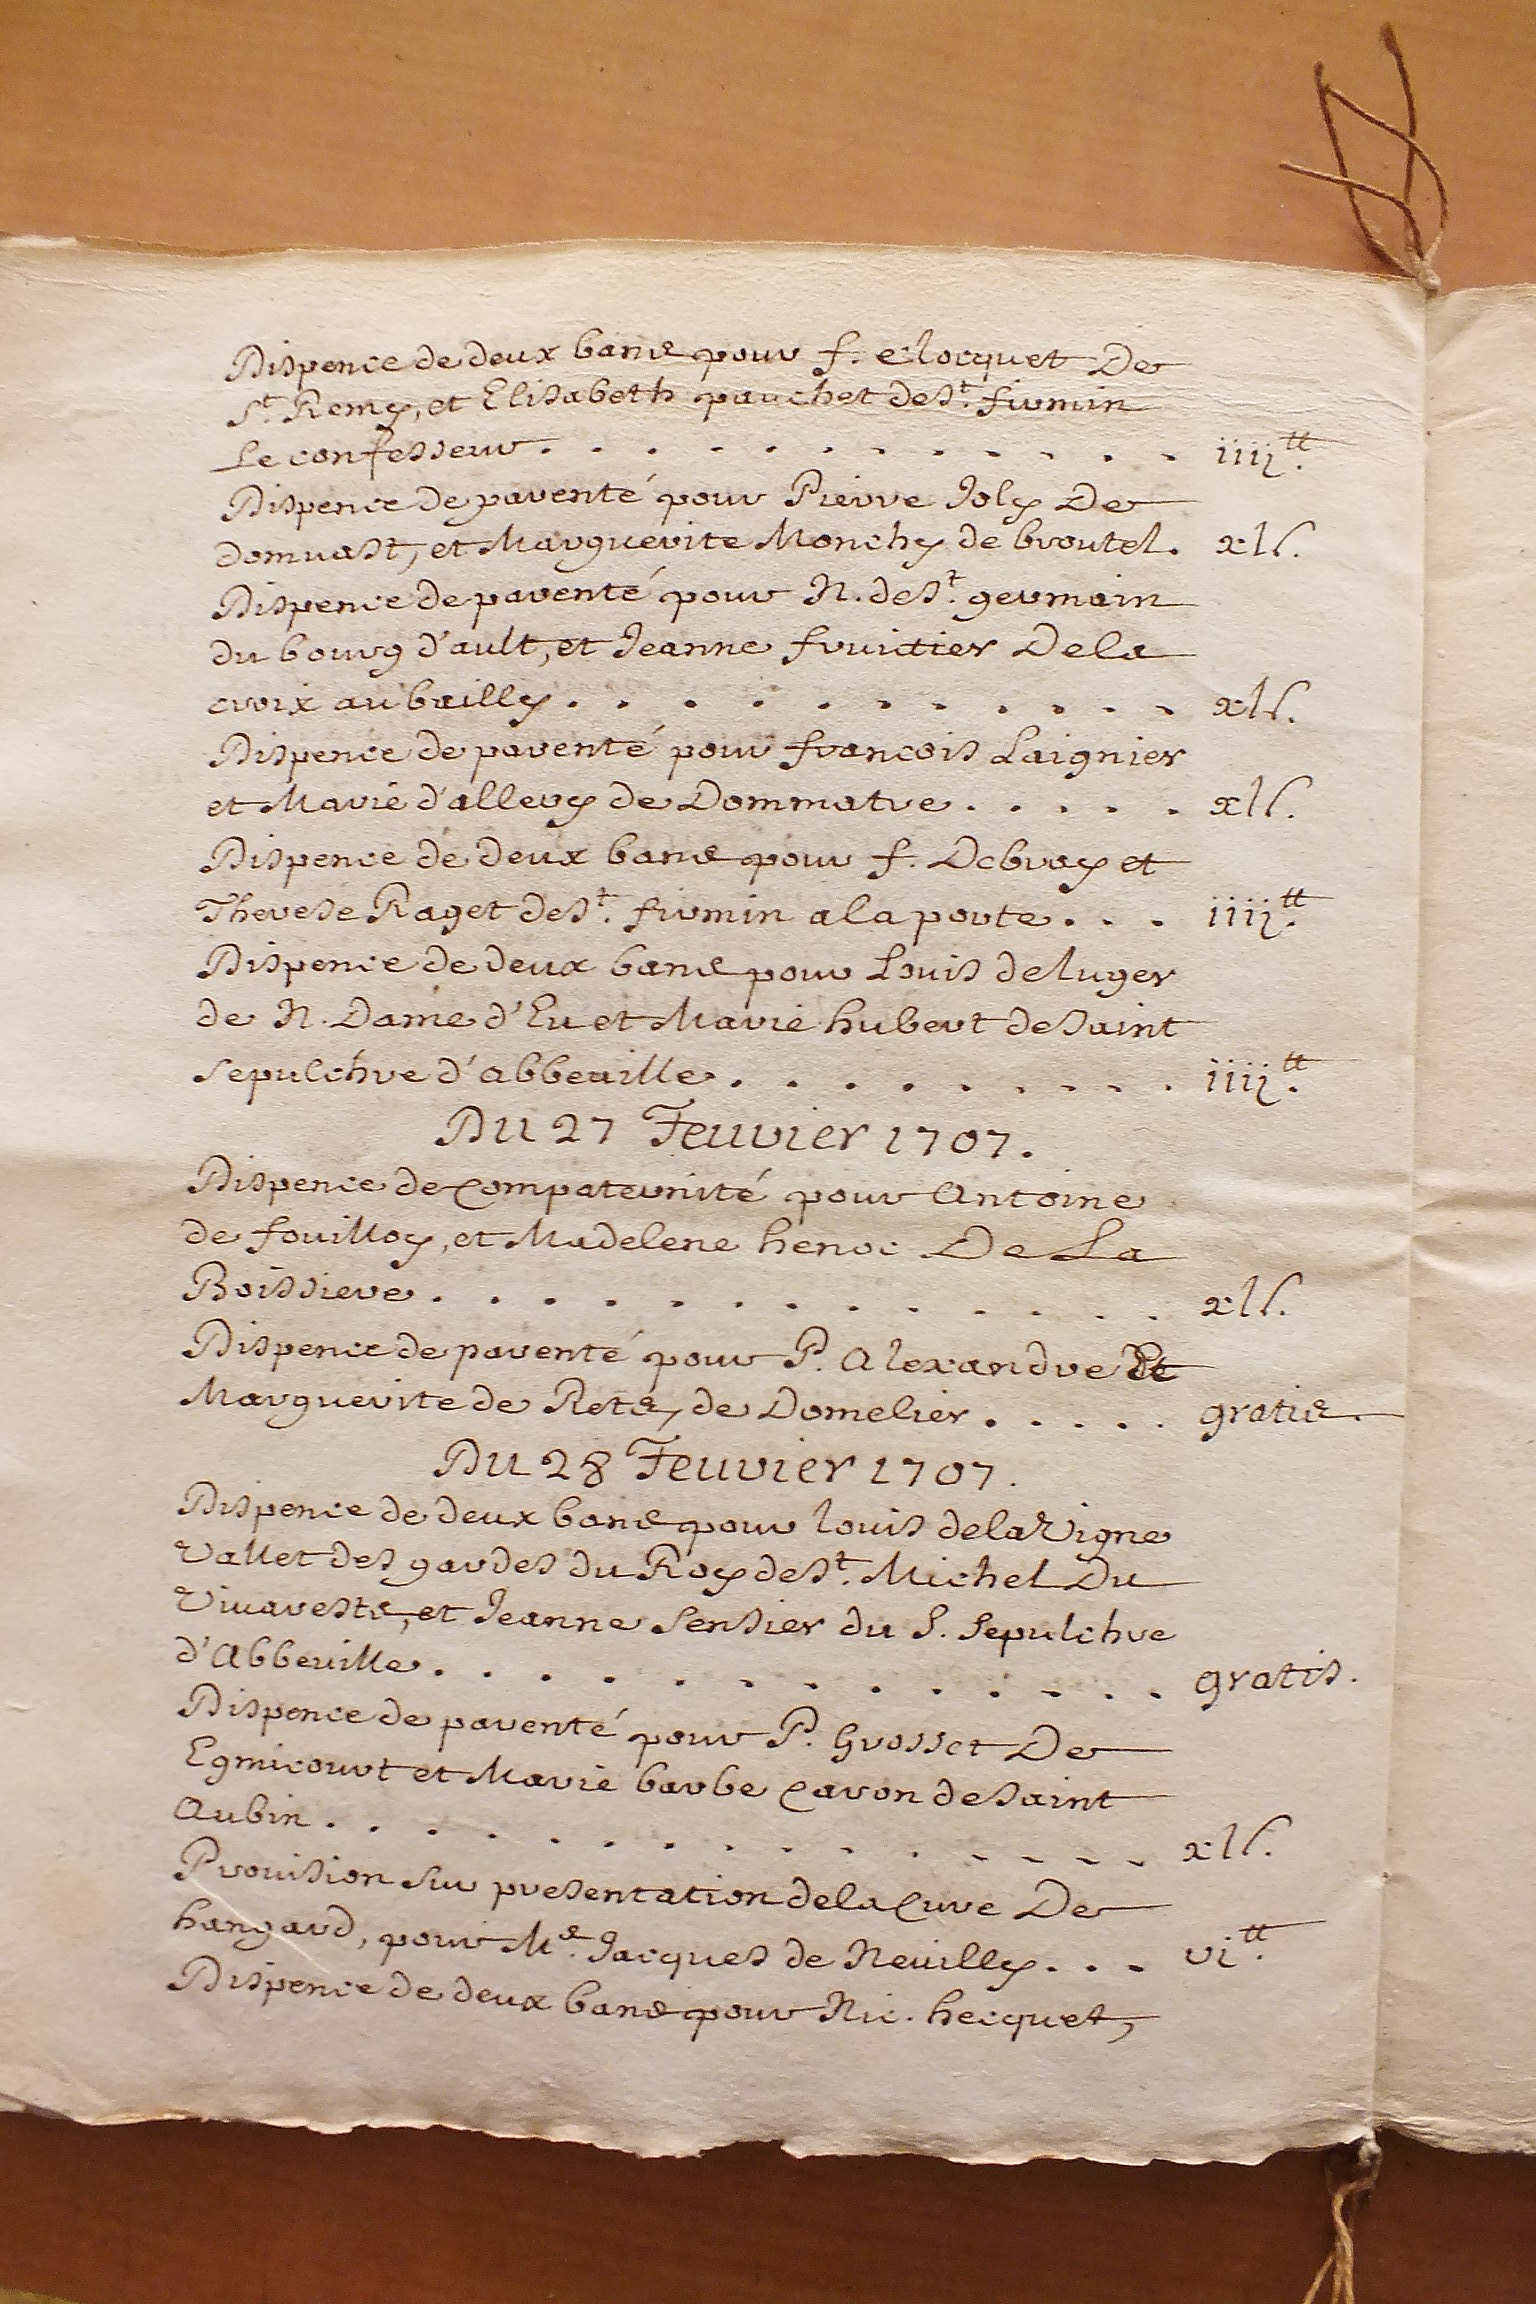 Dispence de deux bans pour f. clocquet De
St. Remy, et Elisabeth pauchet de St. firmin
Le confesseur . . . . . . . . . . . iiij tt.
Dispence de parenté pour Pierre Joly De
domuast, et Marguerite Monchy de broutel. xls.
Dispence de parenté pour N. de St. germain
du bourg d'ault, et Jeanne fruictier De la
croix au bailly . . . . . . . . . . . xls.
Dispence de parenté pour francois Laignier
et Marie d'allery de Dommatre . . . . . xls.
Dispence de deux bans pour f. Debray et
Therese Raget de St. firmin a la porte . . . iiij tt.
Dispence de deux bans pour Louis deluger
de N. Dame d'Eu et Marie hubert de Saint
Sepulchre d'abbeuille . . . . . . . . . iiij tt.
Du 27 Feurier 1707.
Dispence de compaternité pour Antoine
de fouilloy, et Madelene henoc De La
Boissiere . . . . . . . . . . . . . xls.
Dispence de parenté pour P. Alexandre Et
Marguerite de Rets, de Domelier . . . . . gratis.
Du 28 Feurier 1707.
Dispence de deux bans pour louis dela Vigne
Vallet des gardes du Roy de St. Michel Du
Viuarests, et Jeanne Sensier du S. Sepulchre
d'Abbeuille . . . . . . . . . . . . . gratis.
Dispence de parenté pour P. Grosset De
Egnicourt et Marie barbe Caron de Saint
Aubin . . . . . . . . . . . . . . xls.
Prouision sur presentation dela Cure De
hangard, pour Me. Jacques de Neuilly . . . vi tt.
Dispence de deux bans pour Nic. hecquet,